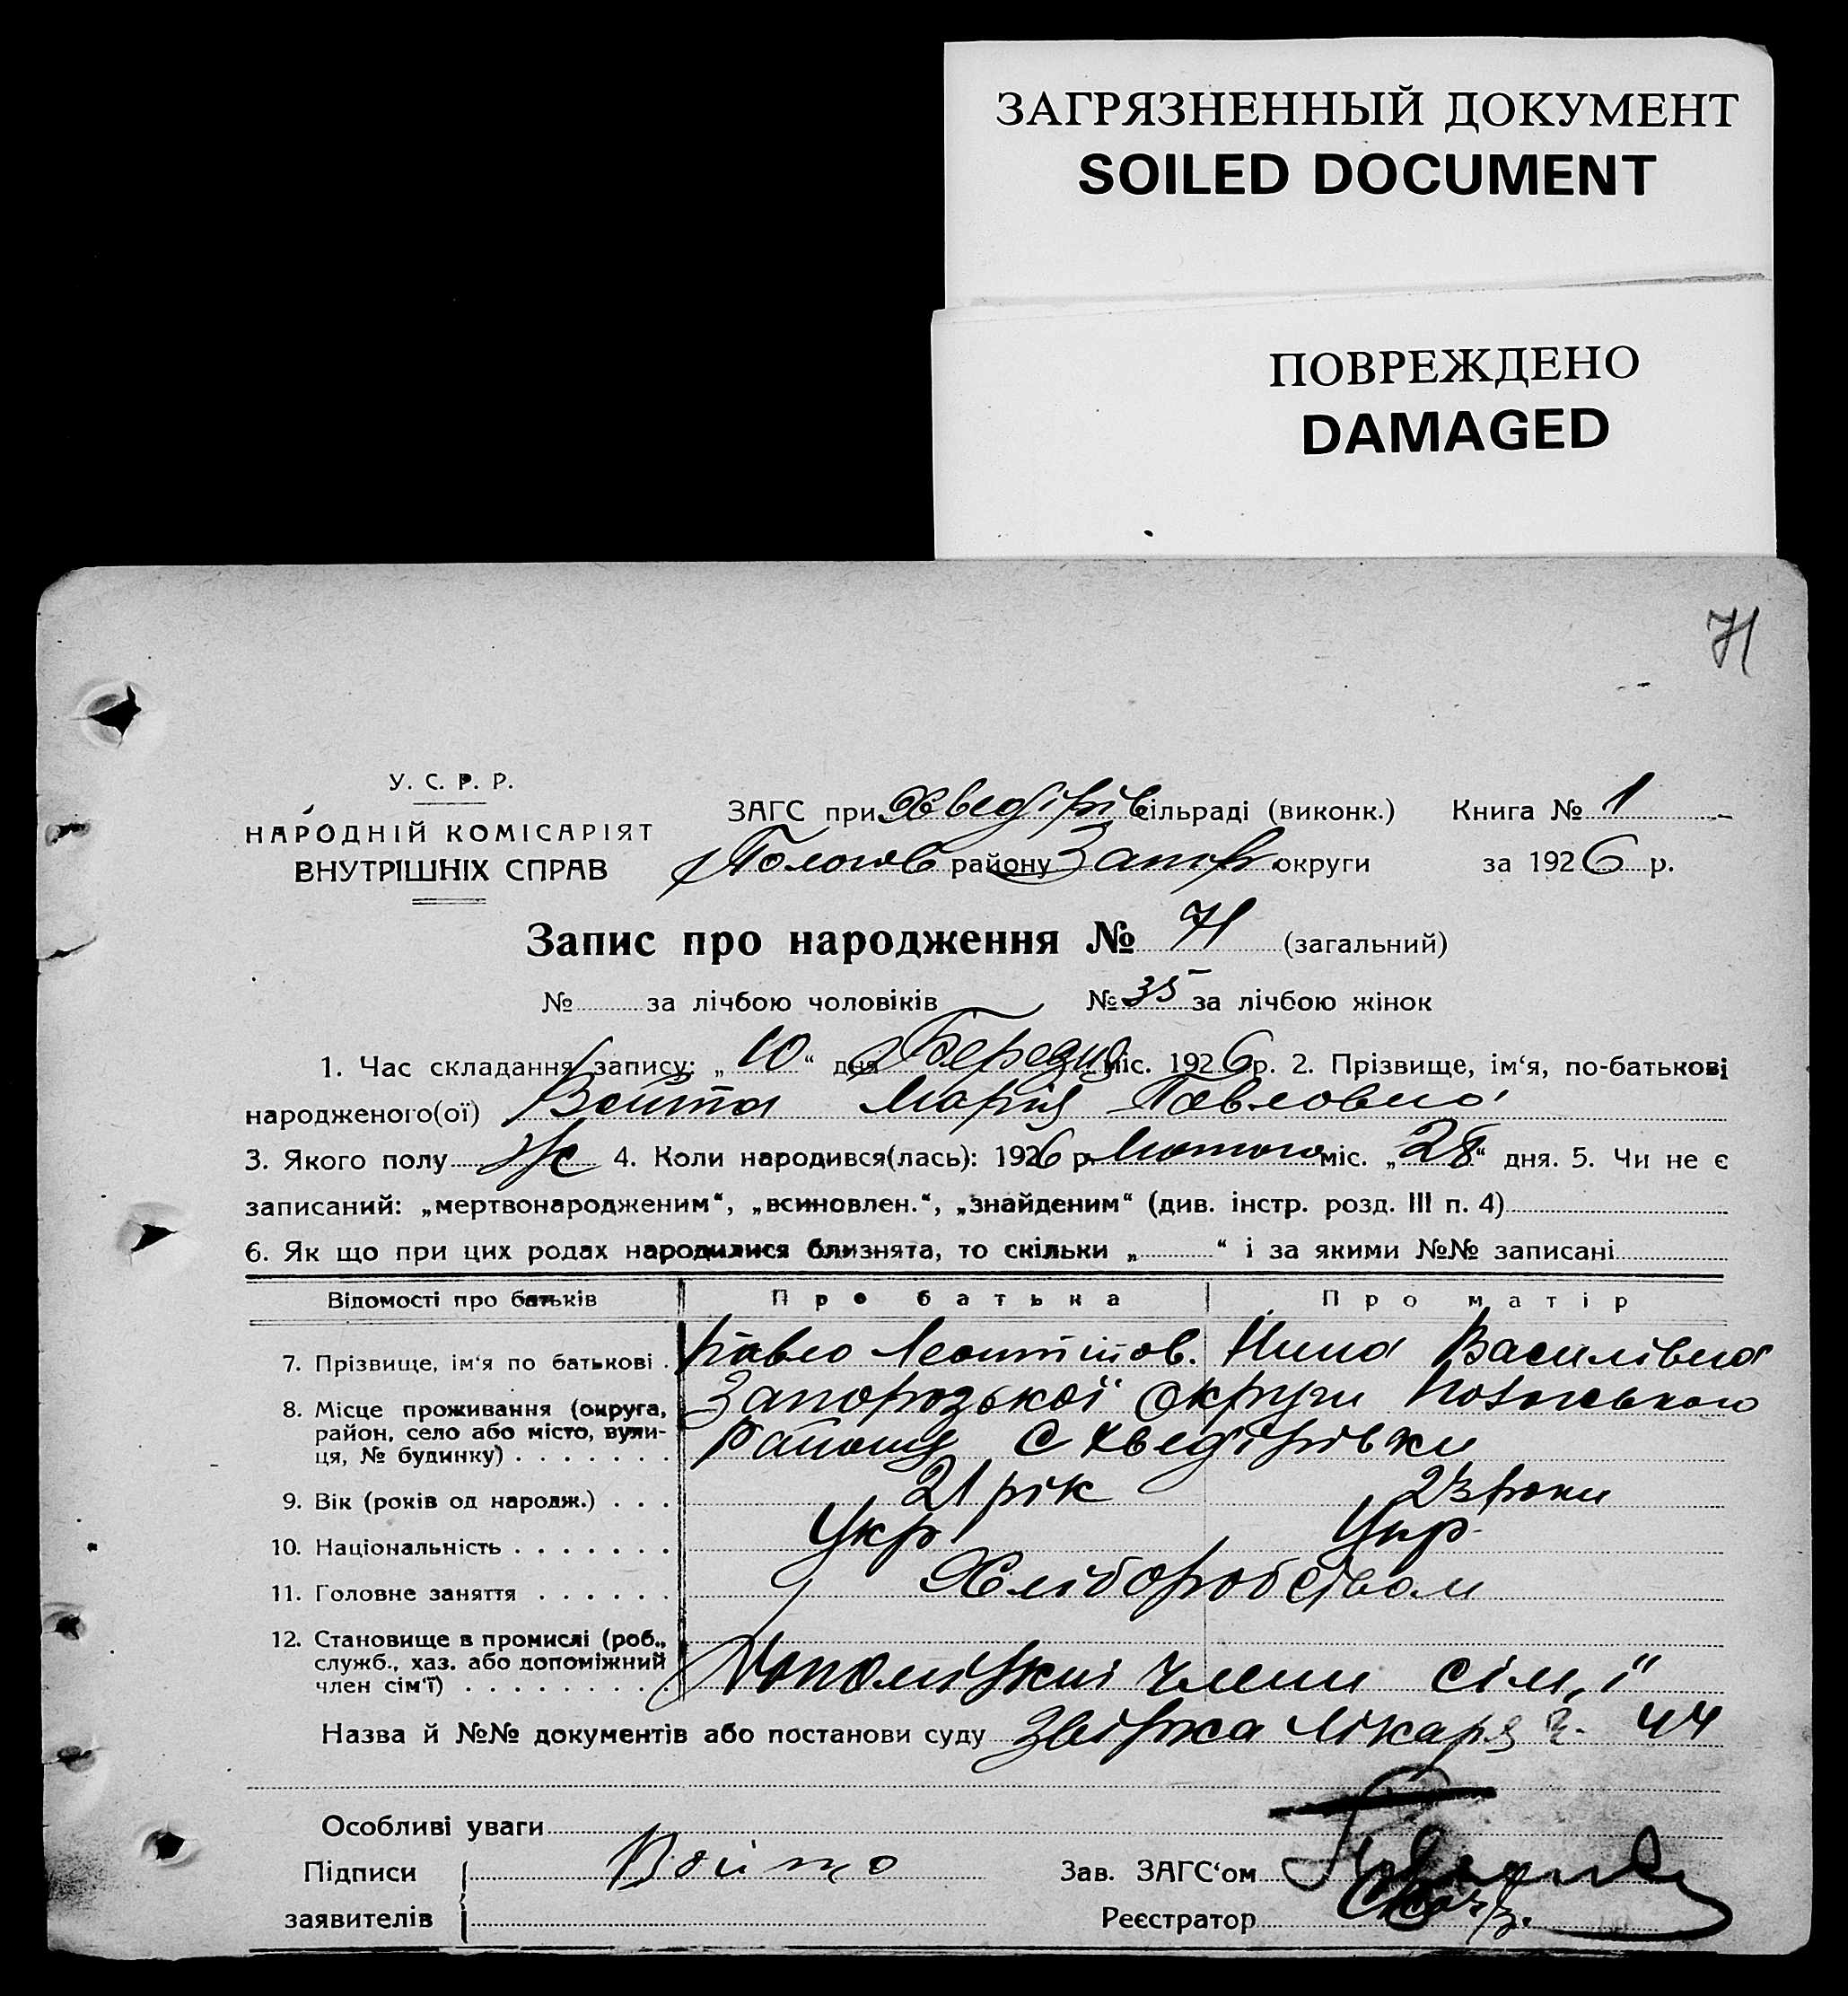 ЗАГРЯЗНЕННЫЙ ДОКУМЕНТ
SOILED DOCUMENT
ПОВРЕЖДЕНО
DAMAGED
71
У. С. Р. Р.
НАРОДНІЙ КОМІСАРІЯТ
ВНУТРІШНІХ СПРАВ
ЗАГС при Хведірів сільраді (виконк.) Книга № 1
Пологів району Запор округи за 1926 р.
Запис про народження № 71 (загальний)
№ за лічбою чоловіків № 35 за лічбою жінок
1. Час складання запису: „10“ дня Березня міс. 1926 р. 2. Прізвище, ім‘я, по-батькові
народженого(ої) Войта Марія Павловна
3. Якого полу Ж 4. Коли народився(лась): 1926 р. Лютого міс. „28“ дня. 5. Чи не є
записаний: „мертвонародженим“, „всиновлен.“, „знайденим“ (див. інстр. розд. III п. 4)
6. Як що при цих родах народилися близнята, то скільки „ “ і за якими №№ записані
Відомості про батьків Про батька Про матір
7. Прізвище, ім‘я по батькові . Павло Леонтійов. Нина Василівна
8. Місце проживання (округа, район, село або місто, вули-ця, № будинку) Запорозької округи Пологівського
Району С Хведірівки
9. Вік (років од народж.) . . . 21 рік 23 роки
10. Національність . . . . . . . Укр Укр
11. Головне заняття . . . . . . Хліборобством
12. Становище в промислі (роб., служб., хаз. або допоміжний член сім‘ї) . . . . . . . . Допоміжні члени сім„ї
Назва й №№ документів або постанови суду Звістка Лікаря ч. 44
Особливі уваги
Підписи Войто Зав. ЗАГС‘ом
заявителів Реєстратор